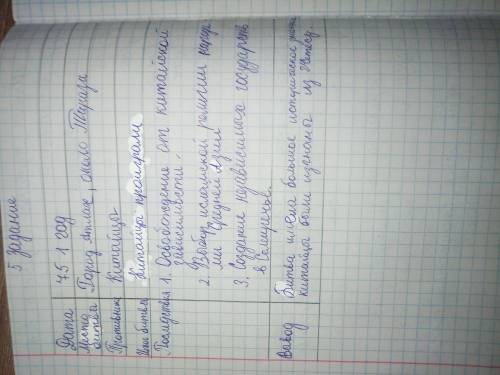 5 задание
Дата 751 год
Место битвы Город Атлах, около Тараза
Противник Китайцы
Итог битвы Китайцы проиграли
Последствия 1. Освобождение от китайской
зависимости.
2. Выбор исламской религии народа
ми Средней Азии
3. Создание независимых государств
в Семиречье.
Вывод Битва имела большое историческое
китайцы были изгнаны из Жетысу.